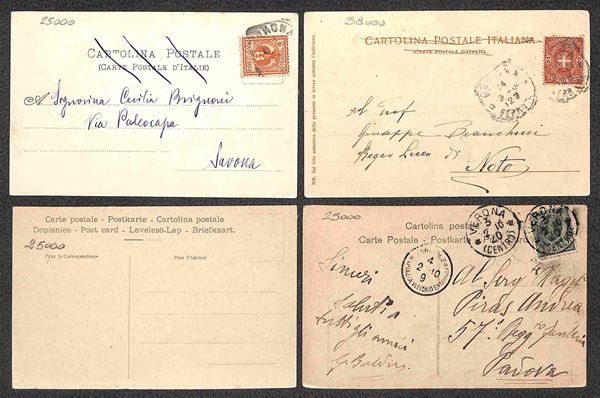 25000
CARTOLINA POSTALE
(CARTE POSTALE D'ITALIE)
A Signorina Cecilia Brignoni
Via Paleocapa
Savona
38000
CARTOLINA POSTALE ITALIANA
(CARTE POSTALE D'ITALIE)
Al Prof
Giuseppe Bianchini
Regio Liceo di
Noto
NB. Sul lato anteriore della presente si scrive soltanto l'indirizzo.
Carte postale - Postkarte - Cartolina postale
Dopisnice - Post card - Levelező-Lap - Briefkaart.
25000
Pour la Correspondance
Pour l'Adresse
25000
Carte postale
Cartolina postale
Postkarte
VERONA
(CENTRO)
Sinceri
Saluti a
tutti gli amici
Al Serg
Piras Andrea
57° Regg Fanteria
Padova